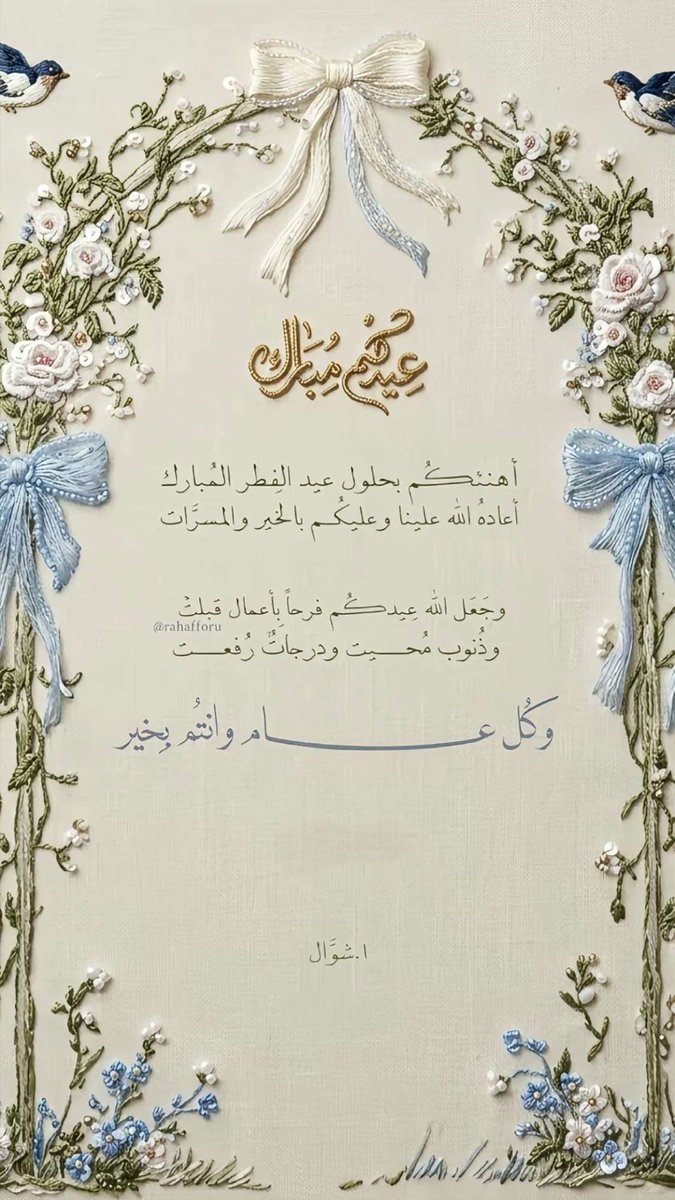 عيدكم مُبارك
أهنئكُم بحلول عيد الفِطر المُبارك
أعادهُ الله علينا وعليكُم بالخير والمسرَّات
وجَعَل الله عِيدكُم فرحاً بِأعمال قبلت
@rahafforu
وذُنوب مُحيت ودرجاتٌ رُفعت
وكُل عام وانتُم بِخير
١.شوَّال